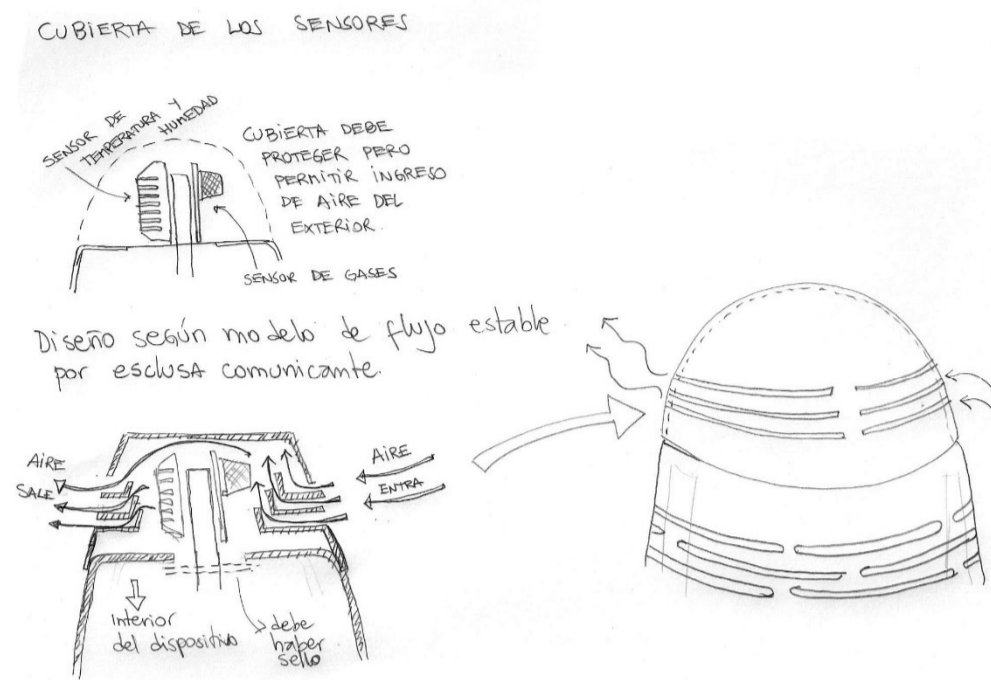 CUBIERTA DE LOS SENSORES
SENSOR DE
TEMPERATURA Y
HUMEDAD
CUBIERTA DEBE
PROTEGER PERO
PERMITIR INGRESO
DE AIRE DEL
EXTERIOR.
SENSOR DE GASES
Diseño según modelo de flujo estable
por esclusa comunicante.
AIRE
SALE
AIRE
ENTRA
Interior
del dispositivo
debe
haber
sello